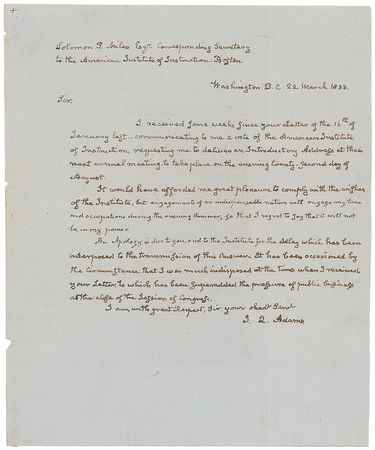 Solomon P. Miles Esqr. Corresponding Secretary
to the American Institute of Instruction. Boston
Washington D.C. 22 March 1833.
Sir.
I received some weeks since your Letter of the 16th of
January last communicating to me a vote of the American Institute
of Instruction, requesting me to deliver an Introductory Address at their
next annual meeting, to take place on the ensuing twenty-second day of
August.
It would have afforded me great pleasure to comply with the wishes
of the Institute, but engagements of an indispensable nature will engage my time
and occupations during the ensuing Summer, so that I regret to say that it will not
be in my power
An Apology is due to you, and to the Institute for the delay which has been
interposed to the transmission of this answer. It has been occasioned by
the Circumstance that I was much indisposed at the time when I received
your Letter, to which has been Superadded the pressure of public business
at the close of the Session of Congress.
I am with great Respect, Sir, your obedt Servt
J. Q. Adams